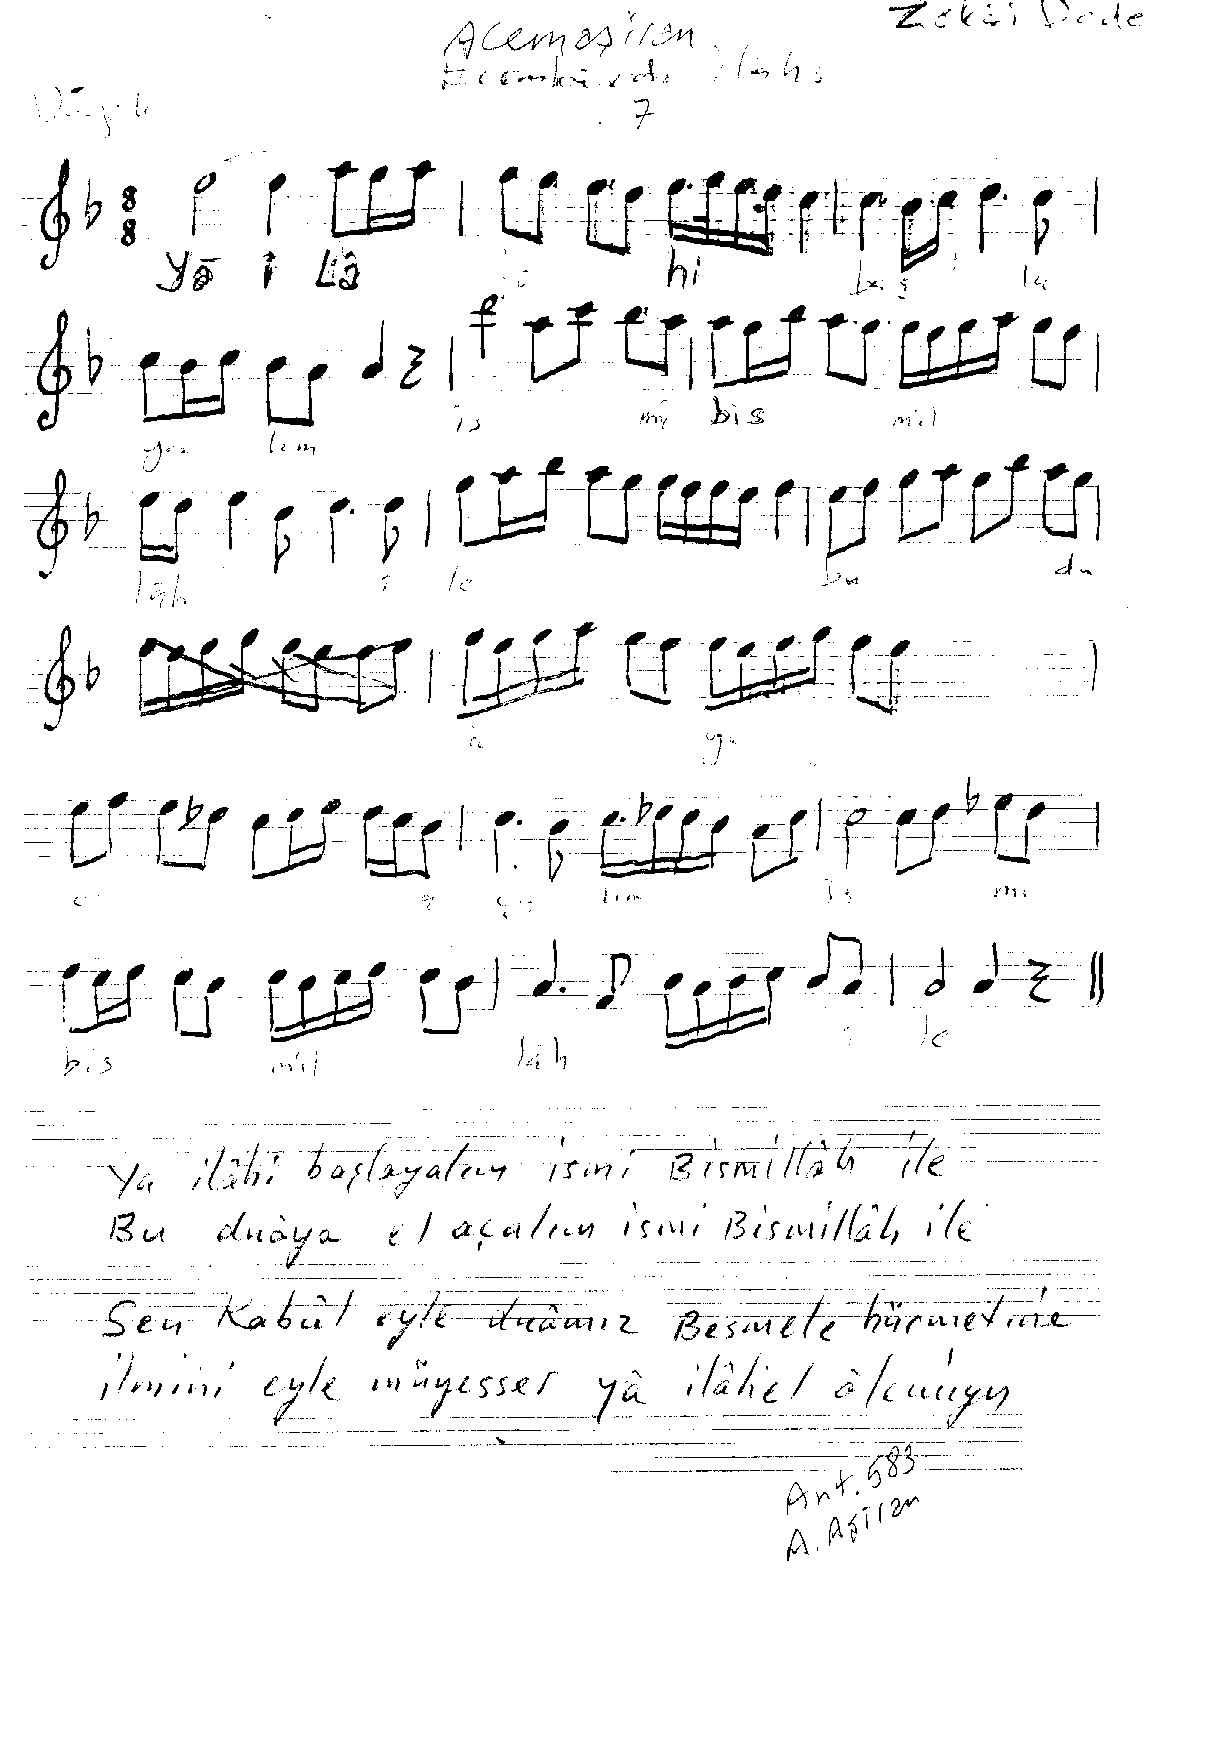 Zekâi Dede
Acemaşiran
ilahi
7
8
8
Yâ i Lâ hi baş la
ya lım is mi bis mil
lâh i le bu du
â ya
e a ça lım is mi
bis mil lâh i le
Ya ilâhi başlayalım ismi Bismillâh ile
Bu duâya el açalım ismi Bismillâh ile
Sen Kabûl eyle duâmız Besmele hürmetine
ilmini eyle müyesser yâ ilâhel âlemiyn
Ant. 583
A. Aşiran